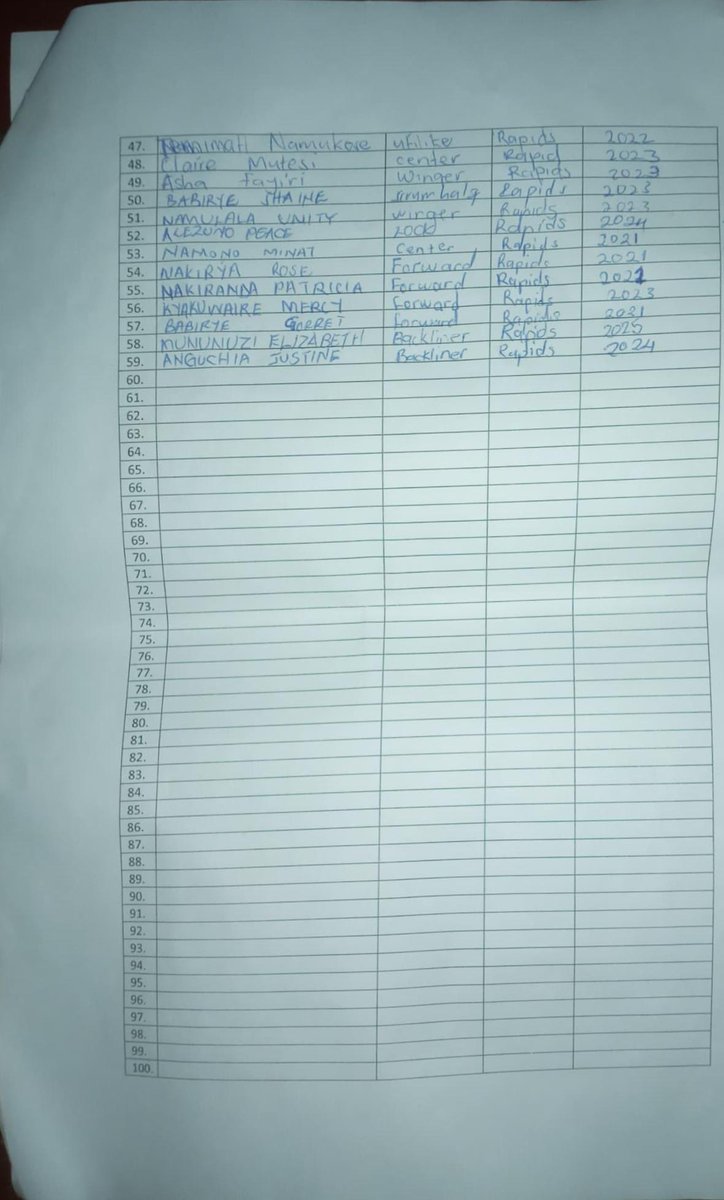 47. Namukose utilike Rapids 2022
48. Claire Mutesi center Rapid 2023
49. Asha Fayiri Winger Rapids 2023
50. BABIRYE SHAINE Rapids 2023
51. NAMULALA UNITY winger Rapids 2023
52. ALEZUYO PEACE Rapids 2024
53. NAMONO MINAT Center Rapids 2021
54. NAKIRYA ROSE Forward Rapids 2021
55. NAKIRANDA PATRICIA Forward Rapids
56. KYAKUWAIRE MERCY Forward Rapids 2023
57. BABIRYE GORRET forward Rapids 2021
58. MUNUNUZI ELIZABETH Backliner Rapids 2025
59. ANGUCHIA JUSTINE Backliner Rapids 2024
60.
61.
62.
63.
64.
65.
66.
67.
68.
69.
70.
71.
72.
73.
74.
75.
76.
77.
78.
79.
80.
81.
82.
83.
84.
85.
86.
87.
88.
89.
90.
91.
92.
93.
94.
95.
96.
97.
98.
99.
100.